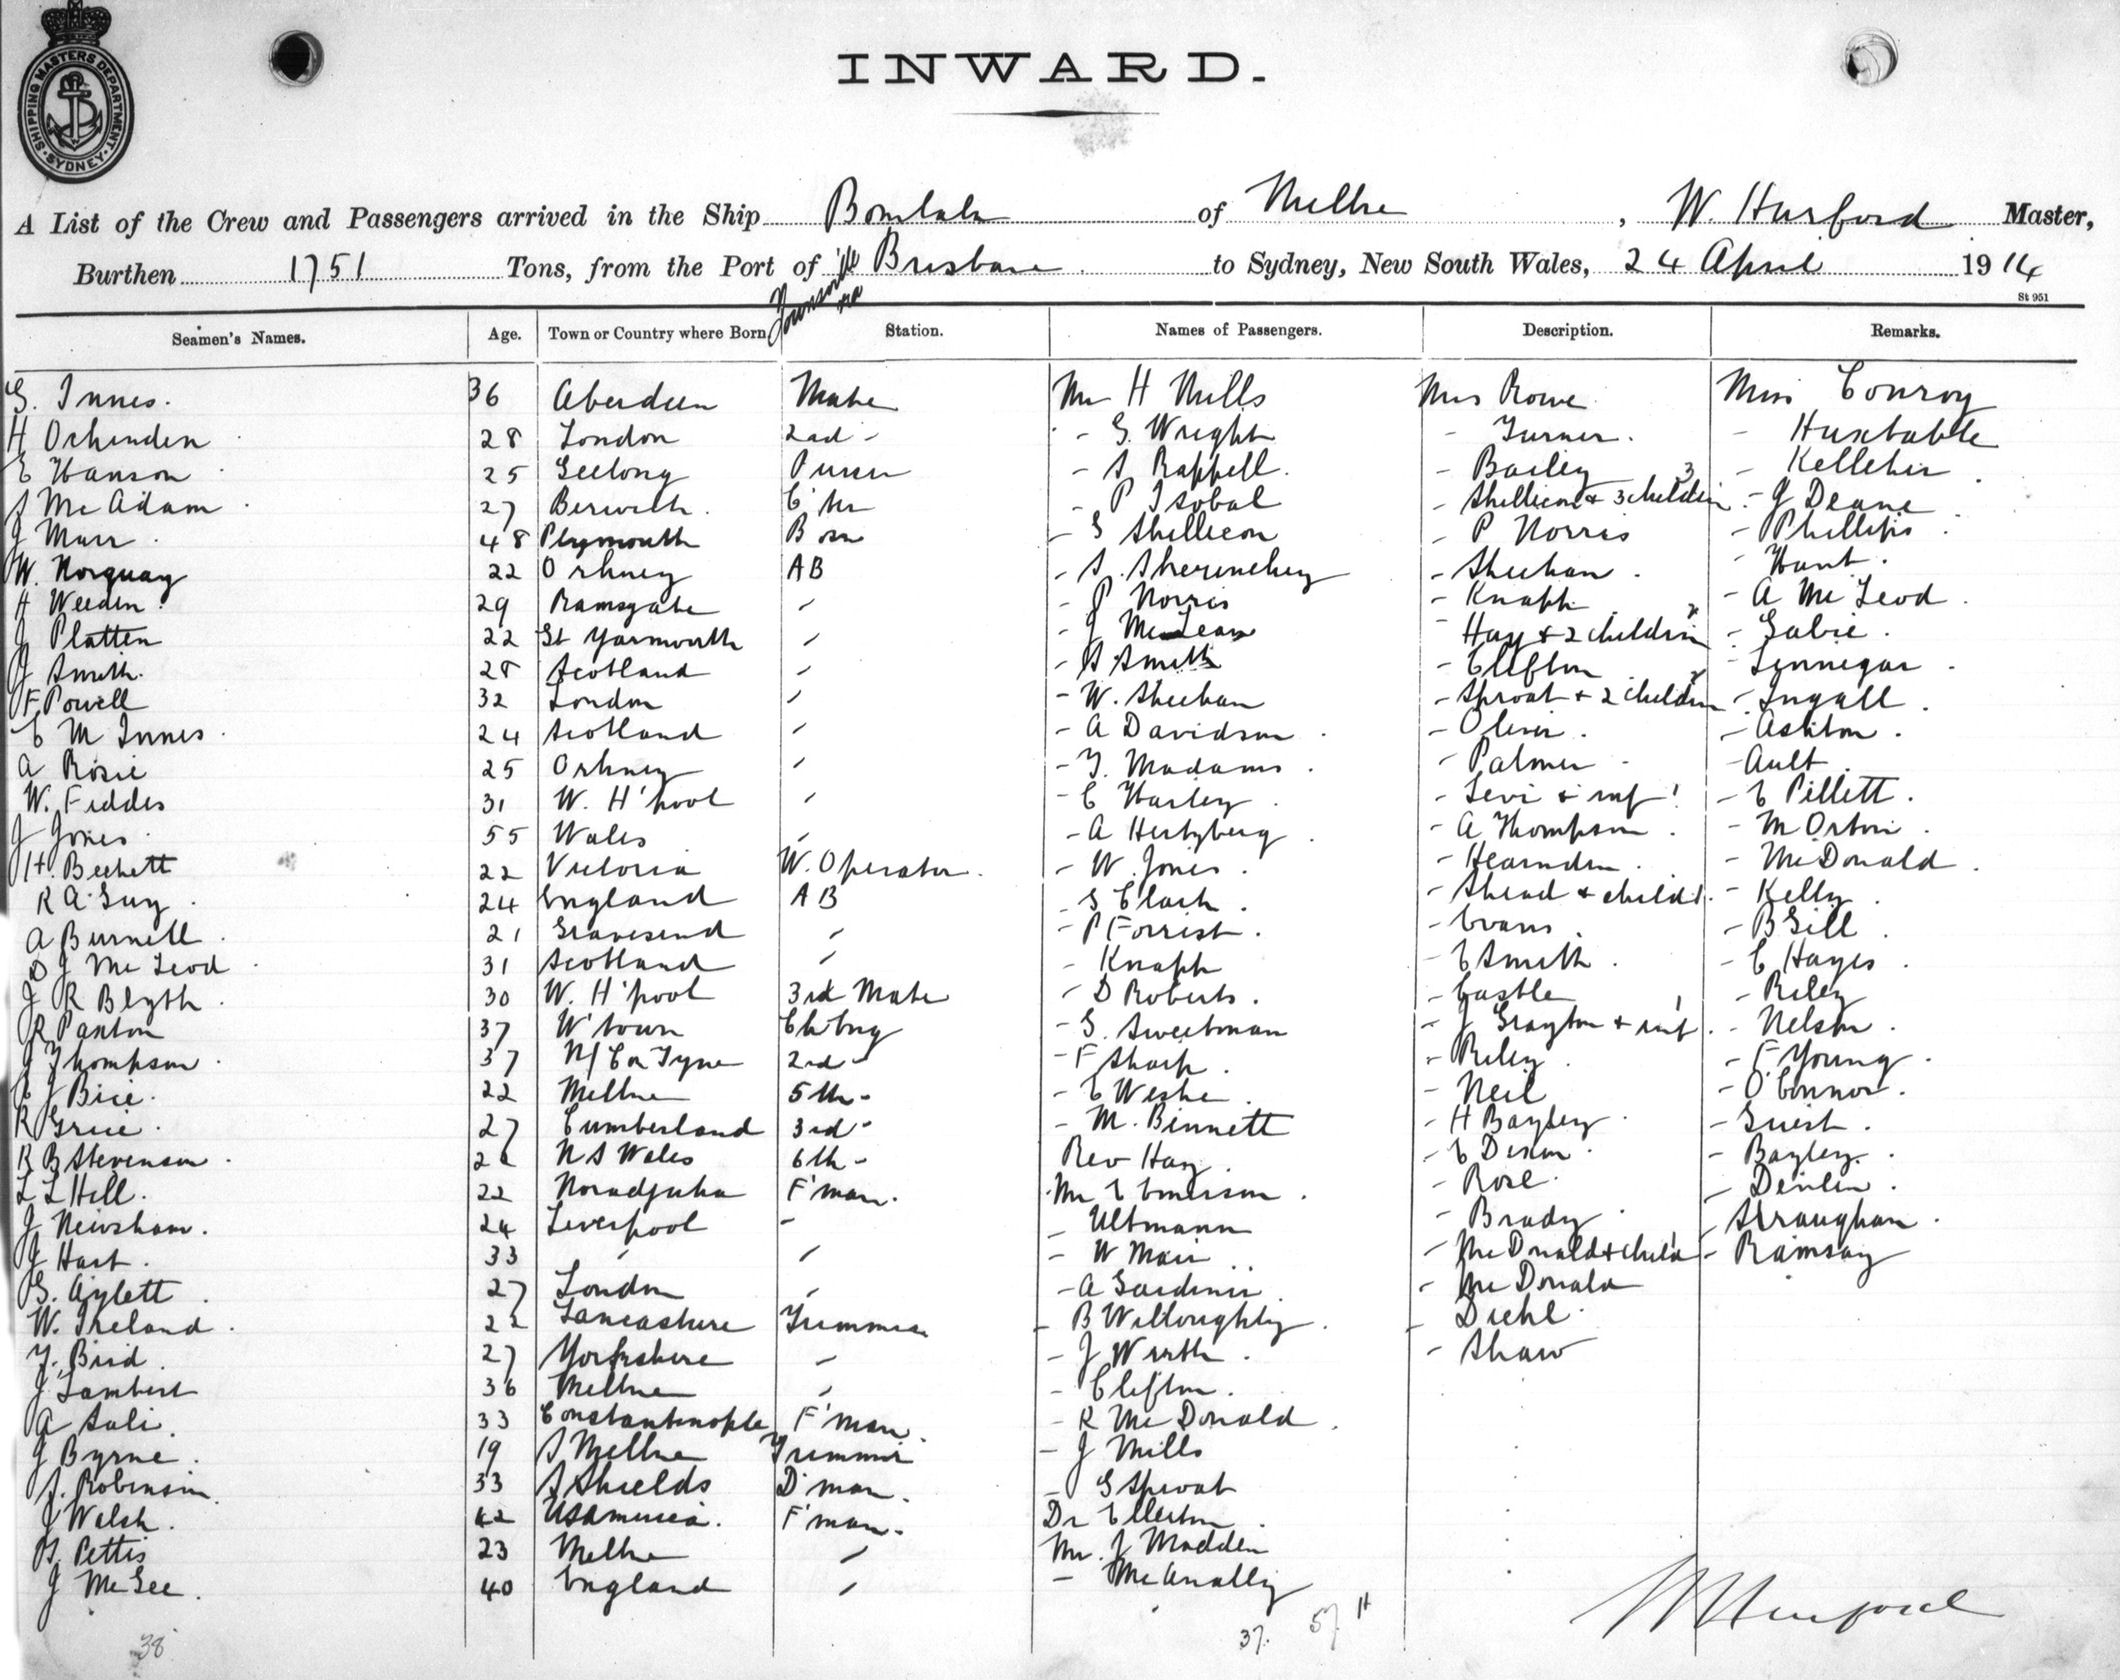 SHIPPING MASTERS DEPARTMENT · SYDNEY ·
INWARD.
A List of the Crew and Passengers arrived in the Ship Bombala of Melbne, W. Hurford Master,
Burthen 1751 Tons, from the Port of Townsville via Brisbane to Sydney, New South Wales, 24 April 1914
St 951
Seamen's Names. Age. Town or Country where Born Station. Names of Passengers. Description. Remarks.
G. Innes. 36 Aberdeen Mate Mr H Mills Mrs Rowe Miss Conroy
H Oxhenden 28 London 2nd - - G. Wright - Turner. - Huxtable
E Hanson 25 Geelong Purser - S Rappell. - Bailey - Kelleher
S McAdam 27 Berwick. C'ter - P Isobal - Shellicon & 3 children 3 - J Deane
J Marr 48 Plymouth Bosn - S Shellicon - P Norris - Phillips
W. Norquay 22 Orkney AB - S. - Sheehan. - Hunt.
H Weeden. 29 Ramsgate " - P Norris - Knapp - A McLeod
J Platten 22 Gt Yarmouth " - J McLean - Hay & 2 children 2 - Gabie.
J Smith. 28 Scotland " - S Smith - Clifton - Finnegan
F Powell 32 London " - W. Sheehan - Sproat & 2 children 2 - Ingall
C M Innes 24 Scotland " - A Davidson - Oliver. - Ashton.
A Rosie 25 Orkney " - T. Madams - Palmer - Ault
W. Fiddes 31 W. H'pool " - C Harley - Levi & inf 1 - E Pillett.
J Jones 55 Wales " - A Hertzberg - A Thompson. - M Orton
H. Beckett 22 Victoria W. Operator - W. Jones. - Hearnden. - McDonald
R A Guy 24 England AB - S Clark. - Shead & child 1 - Kelly
A Burnell 21 Gravesend " - P Forrest. - Evans - B Gill
D J McLeod 31 Scotland " - Knapp - E Smith. - C Hayes
J R Blyth 30 W. H'pool 3rd Mate - D Roberts. - Castle - Riley
R Paxton 37 W'town Ch Eng - S. Sweetman - J Grayton & inf 1 - Nelson
J Thompson 37 N/C on Tyne 2nd - - F Sharp. - Riley - F Young
C J Bice. 22 Melbne 5th - - E Weske - Neil - O'Connor.
R Grice. 27 Cumberland 3rd - - M. Binnett - H Bayley - Guest.
R B Stevenson 22 N S Wales 6th - Rev Hay. - E Dixon. - Bayley.
L L Hill. 22 Noradjuha F'man. Mr E Emerson. - Rose. - Devlin.
J Newsham. 24 Liverpool - - Ultmann - Brady - Straughan.
J Hart. 33 " " - W Mair - McDonald & child 1 - Ramsay
G. Aylett 27 London " - A Gardiner. - McDonald
W. Ireland. 22 Lancashire Trimmer - B Willoughby. - Diehl
T. Bird. 27 Yorkshire " - J Wirth. - Shaw
J Lambert 36 Melbne " - Clifton.
A Sali. 33 Constantinople F'man. - R McDonald.
J Byrne. 19 S Melbne Trimmer - J Mills
S. Robinson. 33 S Shields D'man. - G Sproat
J Welsh. 42 USAmerica. F'man. Dr E Ellerton
H. Pettis 23 Melbne " Mr. J Madden
J McGee. 40 England " - McAnally
38 37. 57 H
W Hurford